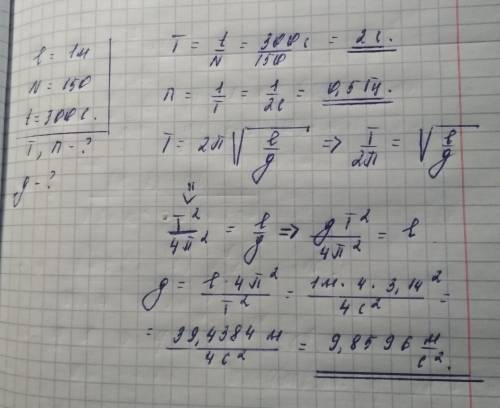 l = 1м
N = 150
t = 300 c.
T, n - ?
g - ?
T = t/N = 300c/150 = 2 c.
n = 1/T = 1/2c = 0,5 Гц.
T = 2π√(l/g) => T/2π = √(l/g)
T²/4π² = l/g => gT²/4π² = l
g = l · 4π²/T² = 1м · 4 · 3,14²/4c² =
= 39,4384 м/4c² = 9,8596 м/c².